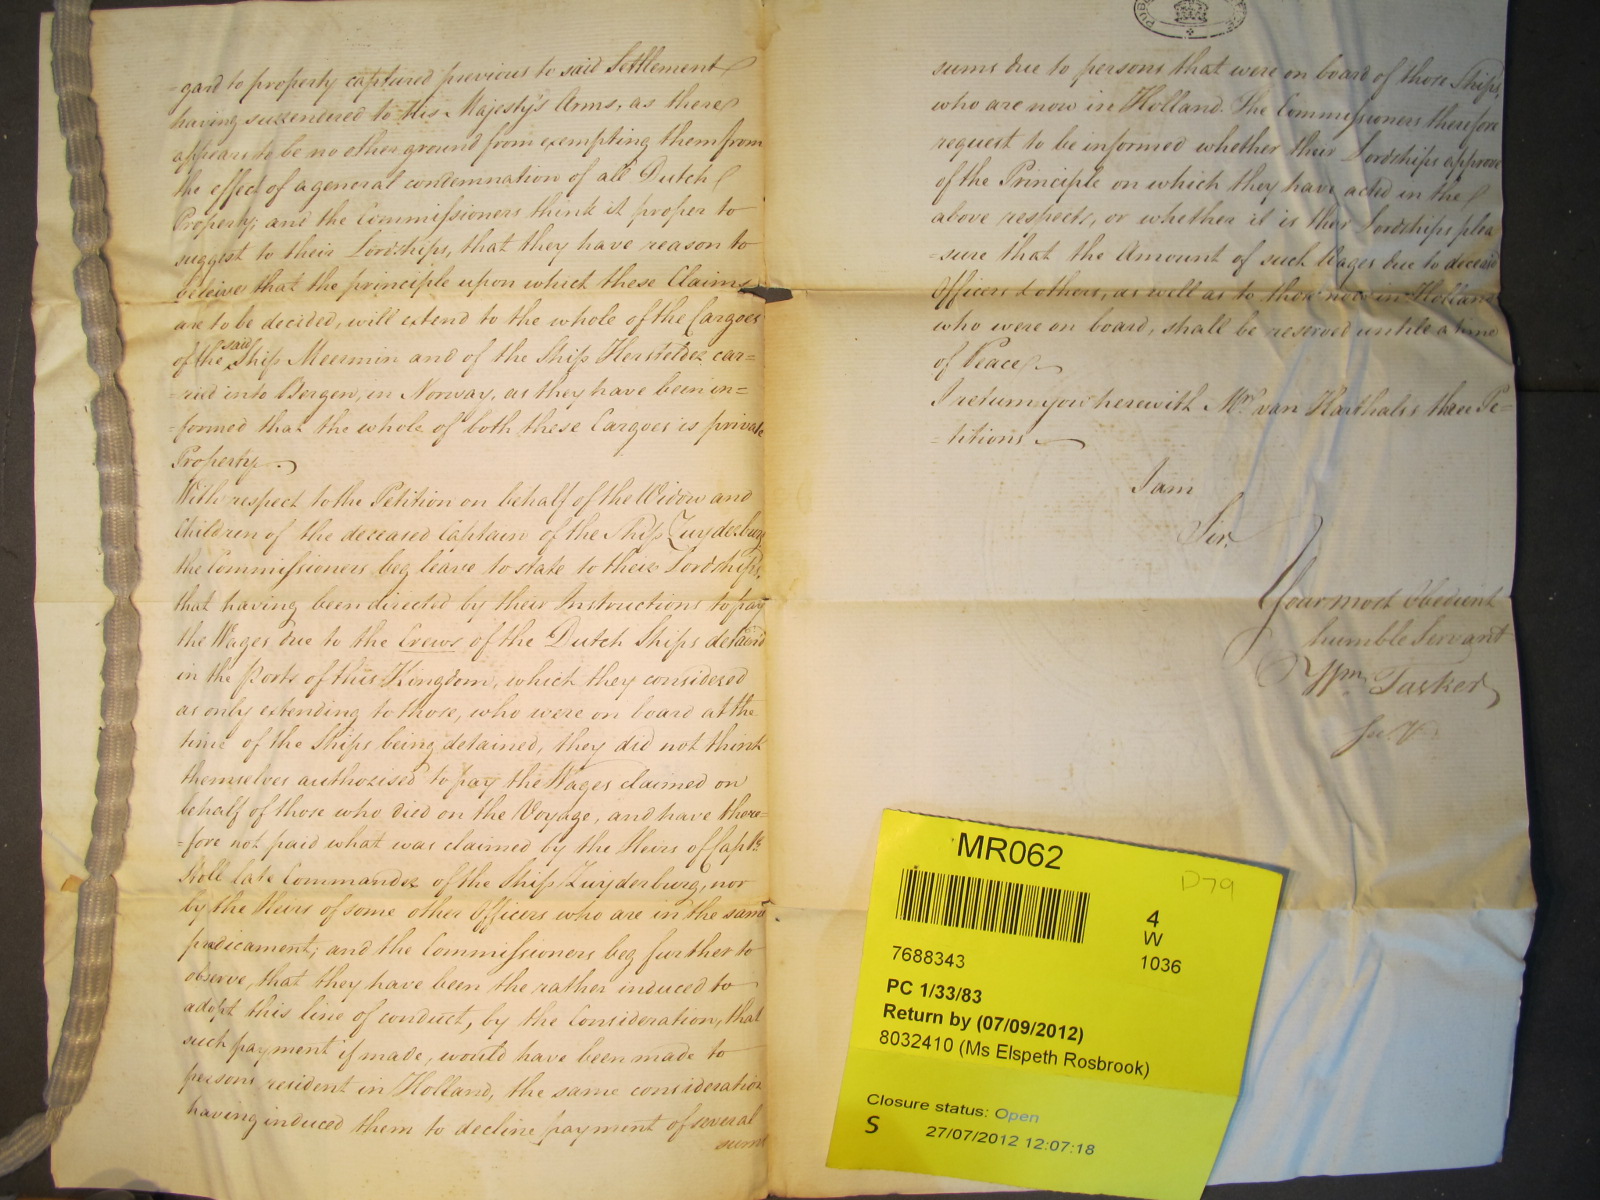 -gard to property captured previous to said Settlement
having surrendered to His Majesty's Arms, as there
appears to be no other ground from exempting them from
the effect of a general condemnation of all Dutch
Property; and the Commissioners think it proper to
suggest to their Lordships, that they have reason to
beleive that the principle upon which these Claims
are to be decided, will extend to the whole of the Cargoes
of the said Ship Meermin and of the Ship Hersteldez car=
=ried into Bergen, in Norway, as they have been in=
=formed that the whole of both these Cargoes is private
Property.
With respect to the Petition on behalf of the Widow and
Children of the deceased Captain of the Ship Zuyderburg
the Commissioners beg leave to state to their Lordships,
that having been directed by their Instructions to pay
the Wages due to the Crews of the Dutch Ships detained
in the Ports of this Kingdom, which they considered
as only extending to those, who were on board at the
time of the Ships being detained, they did not think
themselves authorised to pay the Wages claimed on
behalf of those who died on the Voyage, and have there=
=fore not paid what was claimed by the Heirs of Captn
Roll late Commander of the Ship Zuyderburg, nor
by the Heirs of some other Officers who are in the same
predicament; and the Commissioners beg further to
observe, that they have been the rather induced to
adopt this line of conduct, by the Consideration, that
such payment if made, would have been made to
persons resident in Holland, the same consideration
having induced them to decline payment of several
sums
sums due to persons that were on board of those Ships,
who are now in Holland. The Commissioners therefore
request to be informed whether their Lordships approve
of the Principle on which they have acted in the
above respects, or whether it is their Lordships plea
=sure that the Amount of such Wages due to deceased
Officers & others, as well as to those now in Holland
who were on board, shall be reserved untile a time
of Peace.
I return you herewith Mr van Harthals's three Pe=
=titions.
I am
Sir,
Your most Obedient
humble Servant
Wm Tasker
Secy
MR062
D79
4
W
1036
7688343
PC 1/33/83
Return by (07/09/2012)
8032410 (Ms Elspeth Rosbrook)
Closure status: Open
S 27/07/2012 12:07:18